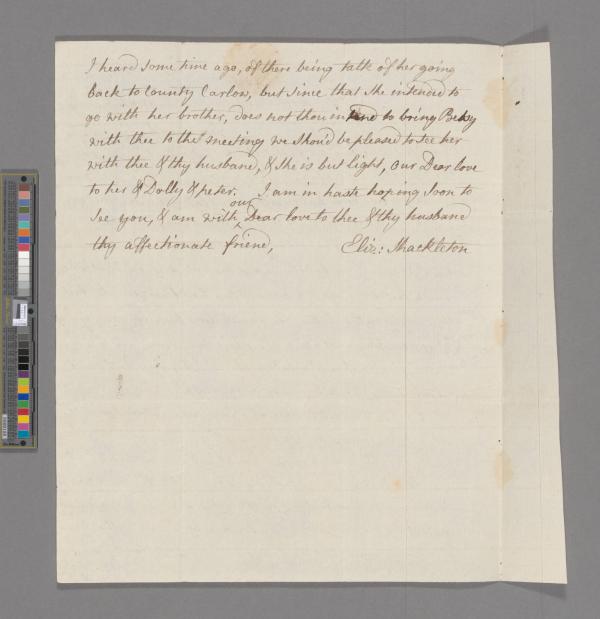 I heard some time ago, of there being talk of her going
back to County Carlow, but since that she intended to
go with her brother, does not thou intend to bring Betsy
with thee to the meeting we shou'd be pleased to see her
with thee & thy husband, & she is but light, our Dear love
to her & Dolly & peter. I am in haste hoping soon to
see you, & am with our Dear love to thee & thy husband
thy affectionate friend, Eliz: Shackleton